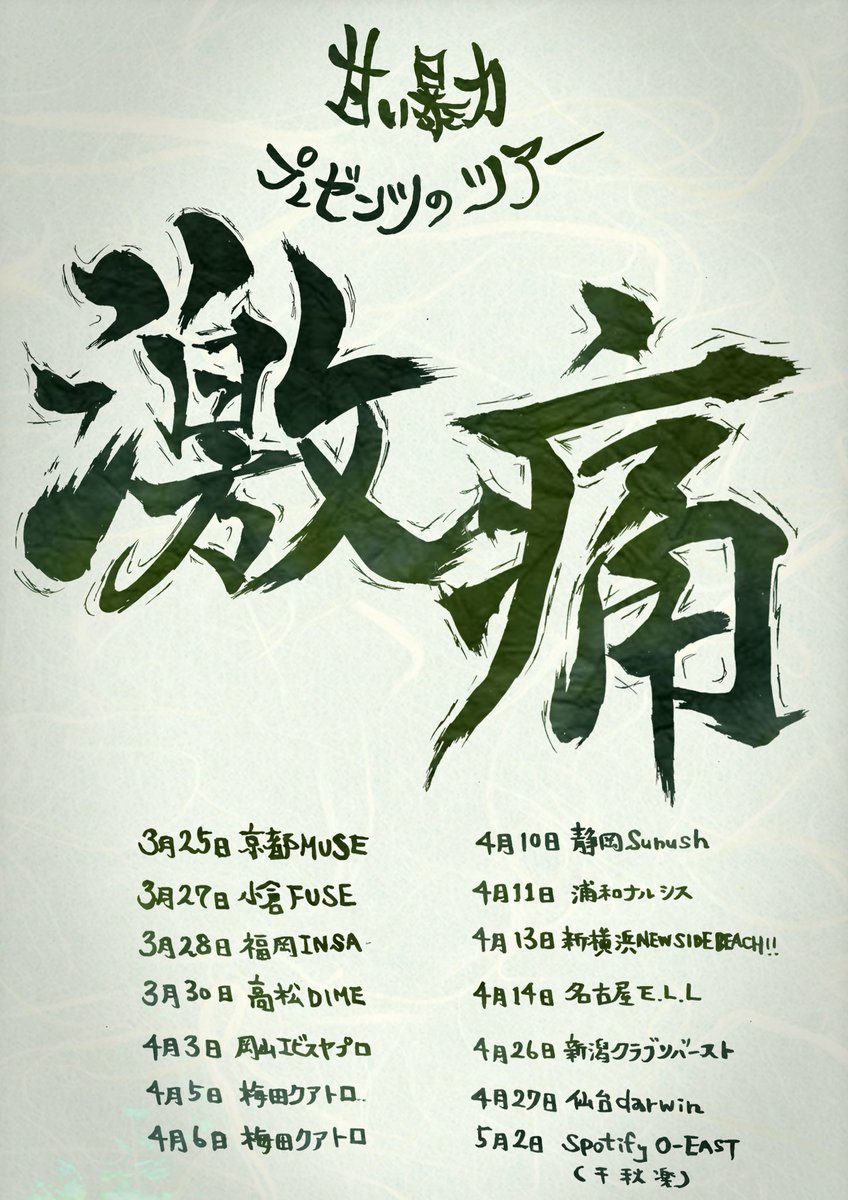 甘い暴力
プレゼンツのツアー
激痛
3月25日 京都MUSE
3月27日 小倉FUSE
3月28日 福岡INSA
3月30日 高松DIME
4月3日 岡山エビスヤプロ
4月5日 梅田クアトロ
4月6日 梅田クアトロ
4月10日 静岡Sunush
4月11日 浦和ナルシス
4月13日 新横浜NEW SIDE BEACH!!
4月14日 名古屋E.L.L
4月26日 新潟クラブリバースト
4月27日 仙台darwin
5月2日 Spotify O-EAST
(千秋楽)